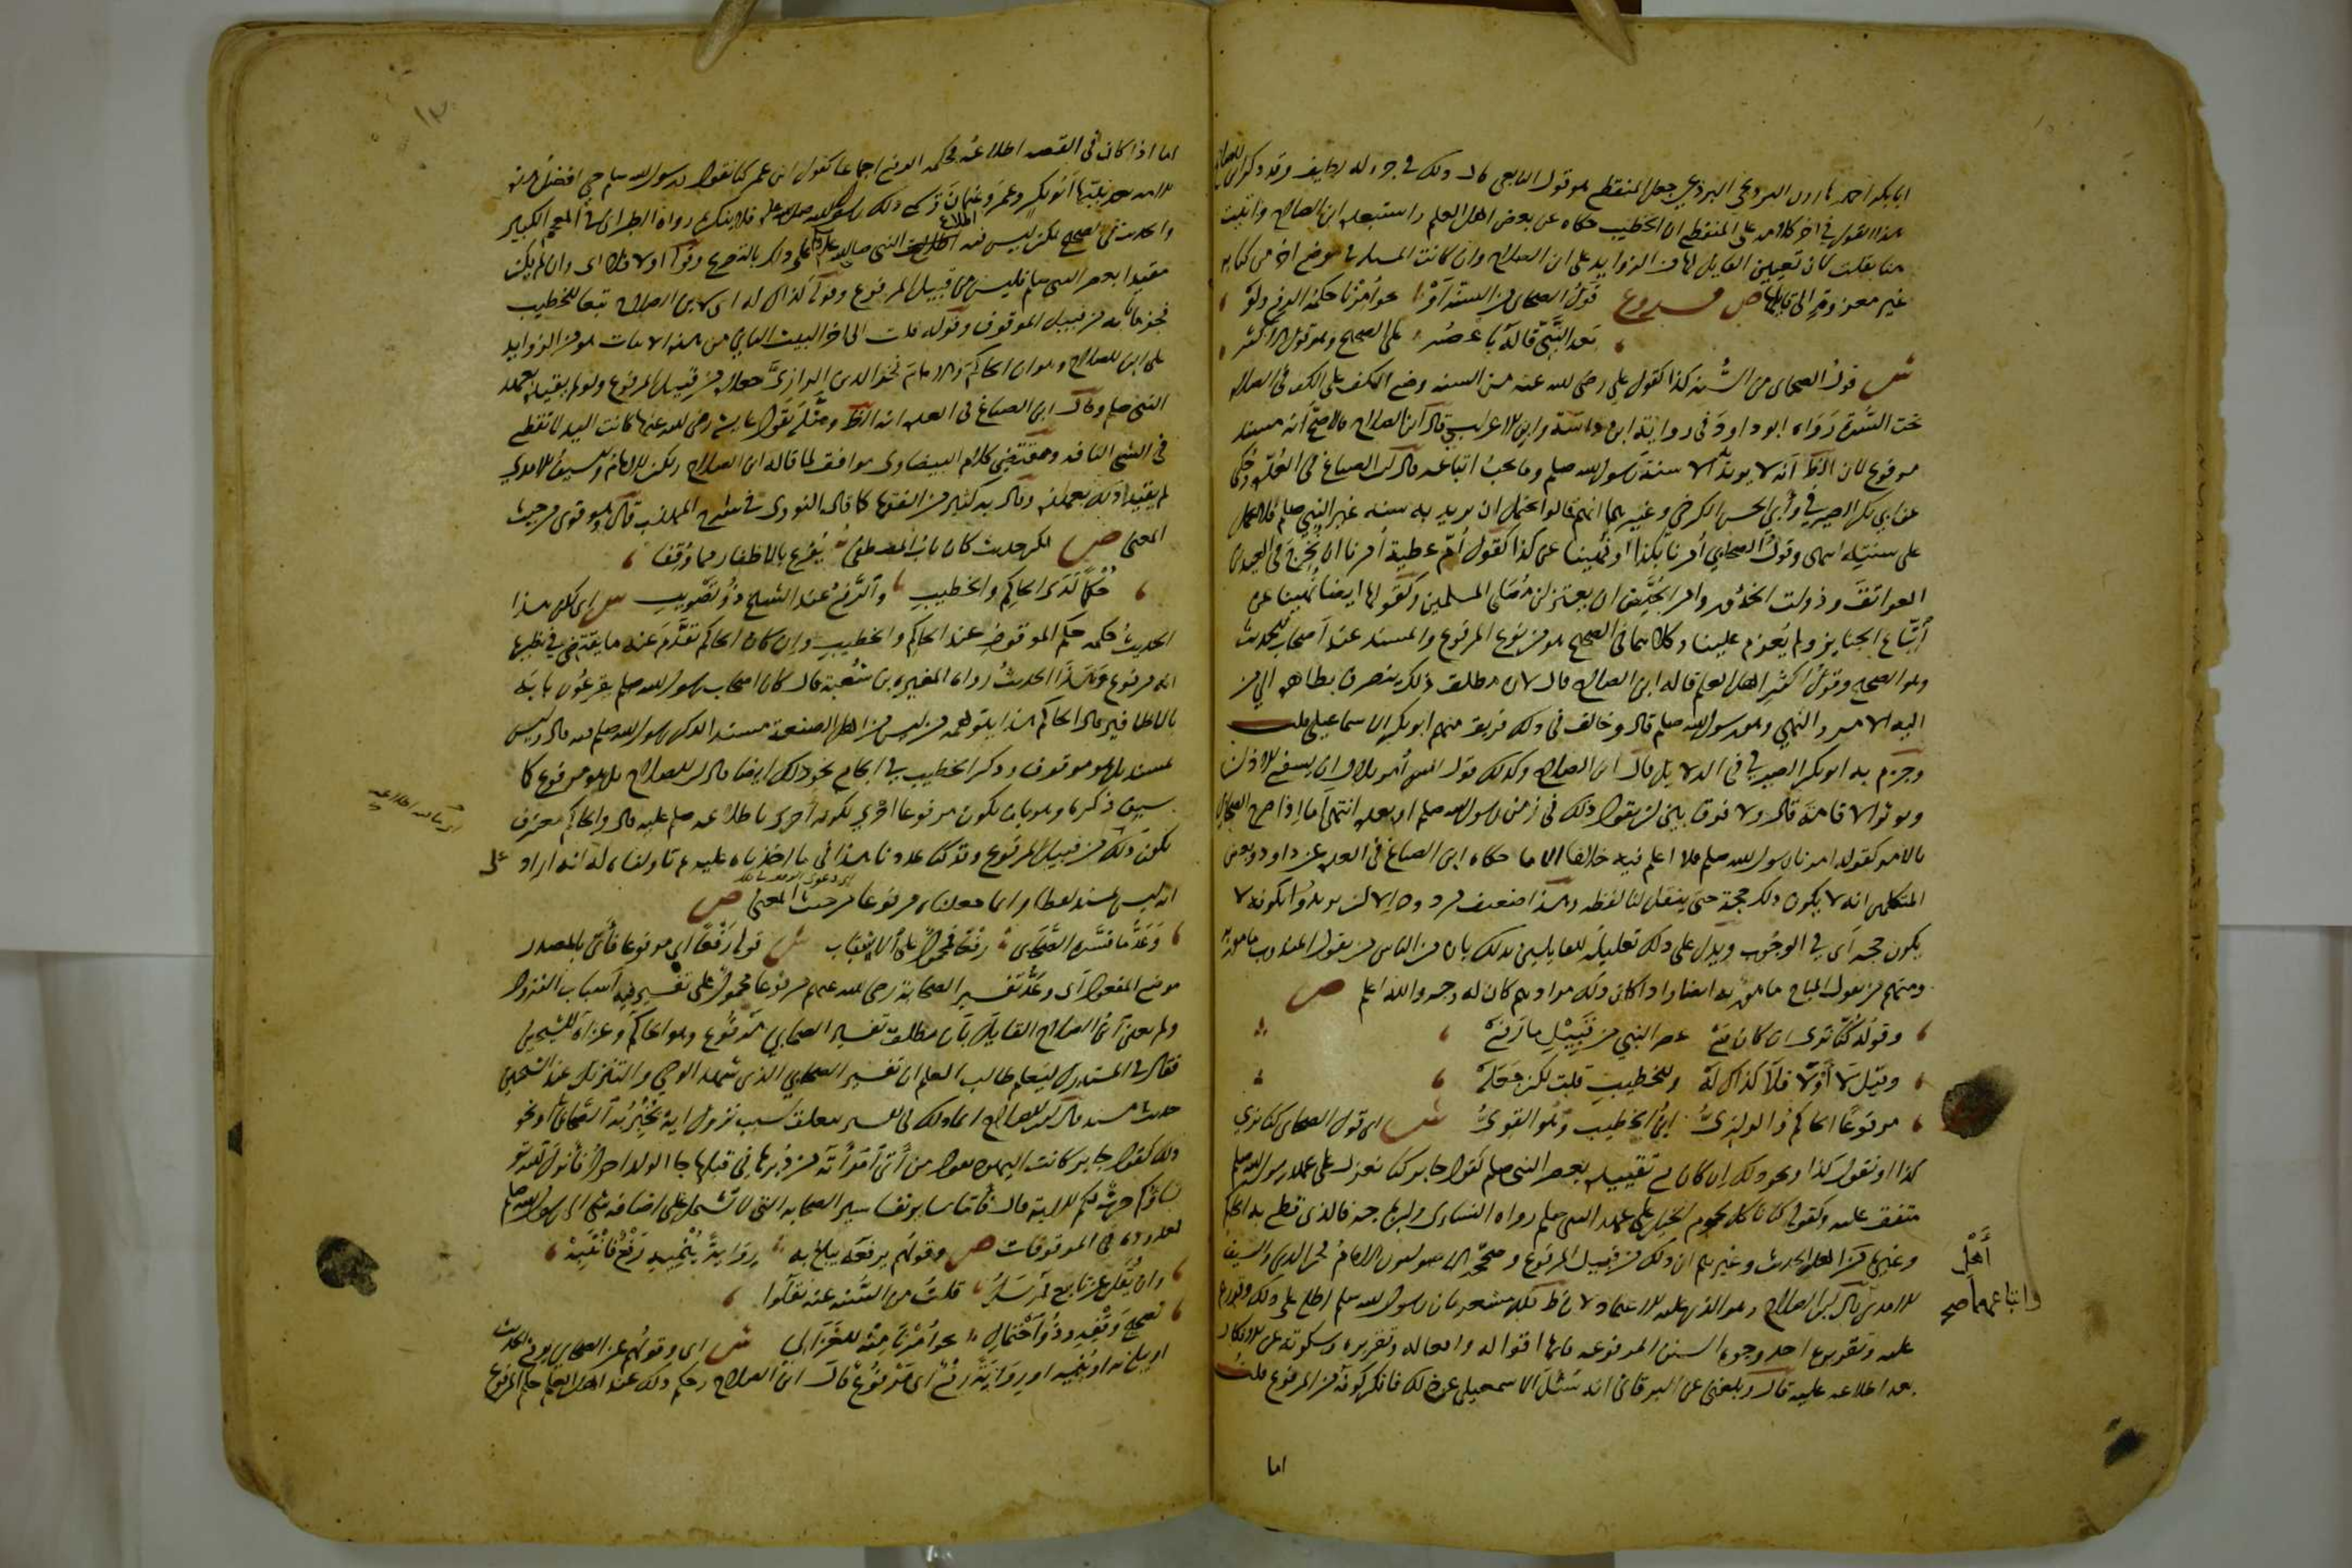 ابا بكر احمد بن هارون البرديجي البرذعي جعل المنقطع هو قول التابعي قال ذلك في جزء له لطيف وقد ذكر ابن الصلاح
هذا القول في اخر كلامه على المنقطع ان الخطيب حكاه عن بعض اهل العلم واستبعده ابن الصلاح واتيت
هنا بقلت لان تعيين القايل لها من الزوايد على ابن الصلاح وان كانت المسلة في موضع اخر من كتابه
غير معزوة الى قايلها ص فروع قول الصحابي من السنة او نحو امرنا حكمه الرفع ولو
بعد النبي قاله باعصر على الصحيح وهو قول الاكثر
ش قول الصحابي من السنة كذا كقول علي رضي لله عنه من السنه وضع الكف على الكف في الصلاة
تحت السرة رواه ابو داود في رواية ابن داسة وابن الاعرابي قال ابن الصلاح فالاصح انه مسند
مرفوع لان الظ انه لا يريد به الا سنة رسول لله صلم وما يجب اتباعه قال ابن الصباغ في العدة وحكي
عن ابي بكر الصيرفي وأبي الحسن الكرخي وغيرهما انهم قالوا يحتمل ان يريد به سنه غير النبي صلم فلا يحمل
على سنته انتهى وقول الصحابي أمرنا بكذا او نهينا عن كذا كقول أم عطية أمرنا ان نخرج في العيدين
العواتق وذوات الخدور وامر الحيض ان يعتزلن مصلى المسلمين وكقولها ايضا نهينا عن
أتباع الجنايز ولم يعزم علينا وكلاهما في الصحيح هو من نوع المرفوع والمسند عند أصحاب الحديث
وهو الصحيح وقول اكثر اهل العلم قاله ابن الصلاح قال لان مطلق ذلك ينصرف بظاهره الى من
اليه الامر والنهي وهو رسول لله صلم قال وخالف في ذلك فريق منهم ابو بكر الاسماعيلي قلت
وجزم به ابو بكر الصيرفي في الدلايل قال ابن الصلاح وكذلك قول انس أمر بلال ان يشفع الاذان
ويوتر الاقامة قال ولا فرق بين ان يقول ذلك في زمن رسول لله صلم او بعده انتهى اما اذا صرح الصحابي
بالامر كقوله امرنا رسول لله صلم فلا اعلم فيه خلافا الا ما حكاه ابن الصباغ في العدة عن داود وبعض
المتكلمين انه لا يكون ذلك حجة حتى ينقل لنا لفظه وهذا ضعيف مردود الا ان يريدوا بكونه لا
يكون حجه اي في الوجوب ويدل على ذلك تعليله للقايلين بذلك بان من الناس من يقول المندوب مامور به
ومنهم من يقول المباح مامور به ايضا واذا كان ذلك مرادهم كان له وجه والله اعلم ص
وقوله كنا نرى ان كان مع عصر النبي من قبيل ما رفع
وقيل لا أو لا فلا كذاك له وللخطيب قلت لكن جعله
مرفوعا الحاكم والرازي ابن الخطيب وهو القوي ش اي قول الصحابي كنا نرى
كذا او نقول كذا ونحو ذلك ان كان مع تقييده بعصر النبي صلم كقول جابر كنا نعزل على عهد رسول الله صلم
متفق عليه وكقوله كنا ناكل لحوم الخيل على عهد النبي صلم رواه النسائي وابن ماجه فالذي قطع به الحاكم
وغيره من اهل الحديث وغيرهم ان ذلك من قبيل المرفوع وصححه الاصوليون الامام فخر الدين والسيف
الامدي قال ابن الصلاح وهو الذي عليه الاعتماد لان ظ ذلك مشعر بان رسول لله صلم اطلع على ذلك وقررهم
عليه وتقريره احد وجوه السنن المرفوعه فانها اقواله وافعاله وتقريره وسكوته عن الانكار
بعد اطلاعه عليه قال وبلغني عن البرقاني انه سئل الاسمعيلي عن ذلك فانكر كونه من المرفوع قلت
اهل
واتباعهما صح
اما
اما اذا كان في القصه اطلاعه فحكمه الرفع اجماعا كقول ابن عمر كنا نقول ورسول لله صلم حي افضل هذه
الامه بعد نبيها أبو بكر وعمر وعثمان ويسمع ذلك رسول لله صلى لله عليه وسلم فلا ينكره رواه الطبراني في المعجم الكبير
والحديث في الصحيح لكن ليس فيه اطلاع النبي صلى الله عليه وسلم على ذلك بالتصريح وقوله او لا فلا اي وان لم يكن
مقيدا بعصر النبي صلم فليس من قبيل المرفوع وقوله كذاك له اي لابن الصلاح تبعا للخطيب
فجزما بانه من قبيل الموقوف وقوله قلت الى اخر البيت الثاني من هذه الابيات هو من الزوايد
على ابن الصلاح وهو ان الحاكم والامام فخر الدين الرازي جعلاه من قبيل المرفوع ولو لم يقيده بعهد
النبي صلم وقال ابن الصباغ في العدة انه الظ ومثله بقول عايشة رضي لله عنها كانت اليد لا تقطع
في الشي التافه ومقتضى كلام البيضاوي موافق لما قاله ابن الصلاح ولكن الامام والسيف الامدي
لم يقيدا ذلك بعهده وقال به كثير من الفقها كما قاله النووي في شرح المهذب قال وهو قوي من حيث
المعنى ص لكن حديث كان باب المصطفى يقرع بالاظفار مما وقفا
حكما لدى الحاكم والخطيب والرفع عند الشيخ ذو تصويب ش اي لكن هذا
الحديث حكمه حكم الموقوف عند الحاكم والخطيب وان كان الحاكم تقدم عنه ما يقتضي في نظيره
انه مرفوع وهذا الحديث رواه المغيره بن شعبة قال كان اصحاب رسول لله صلم يقرعون بابه
بالاظافير قال الحاكم هذا يتوهمه من ليس من اهل الصنعة مسندا لذكر رسول لله صلم فيه قال وليس
بمسند بل هو موقوف وذكر الخطيب في الجامع نحو ذلك ايضا قال ابن الصلاح بل هو مرفوع كما
سبق ذكره وهو بان يكون مرفوعا احرى لكونه احرى باطلاعه صلم عليه قال والحاكم معترف
بكون ذلك من قبيل المرفوع وقد كنا عددنا هذا فيما اخذناه عليه ثم تاولناه له انه اراد
انه ليس بمسند لفظا وانما جعلناه مرفوعا من حيث المعنى ص
وعد ما فسره الصحابي رفعا فمحمول على الاسباب ش قوله رفعا اي مرفوعا فأتى بالمصدر
موضع المفعول اي وعد تفسير الصحابة رضي لله عنهم مرفوعا محمول على تفسير فيه أسباب النزول
ولم يعين ابن الصلاح القايل بان مطلق تفسير الصحابي مرفوع وهو الحاكم وعزاه للشيخين
فقال في المستدرك ليعلم طالب العلم ان تفسير الصحابي الذي شهد الوحي والتنزيل عند الشيخين
حديث مسند قال ابن الصلاح انما ذلك في تفسير يتعلق بسبب نزول اية يخبر به الصحابي او نحو
ذلك كقول جابر كانت اليهود تقول من أتى امرأته من دبرها في قبلها جا الولد احول فأنزل لله تعالى
نساؤكم حرث لكم الاية قال فأما ساير تفاسير الصحابه التي لا تشتمل على اضافه شي الى رسول لله صلم
فمعدودة في الموقوفات ص وقولهم يرفعه يبلغ به رواية ينميه رفع فانتبه
وان يقل عن تابع فمرسل قلت من السنه عنه نقلوا
تصحيح وقفه وذو احتمال نحو أمرنا منه للغزالي ش اي وقولهم عن الصحابي يرفع الحديث
او يبلغ به او ينميه او رواية رفع اي مرفوع قال ابن الصلاح وحكم ذلك عند اهل العلم حكم المرفوع